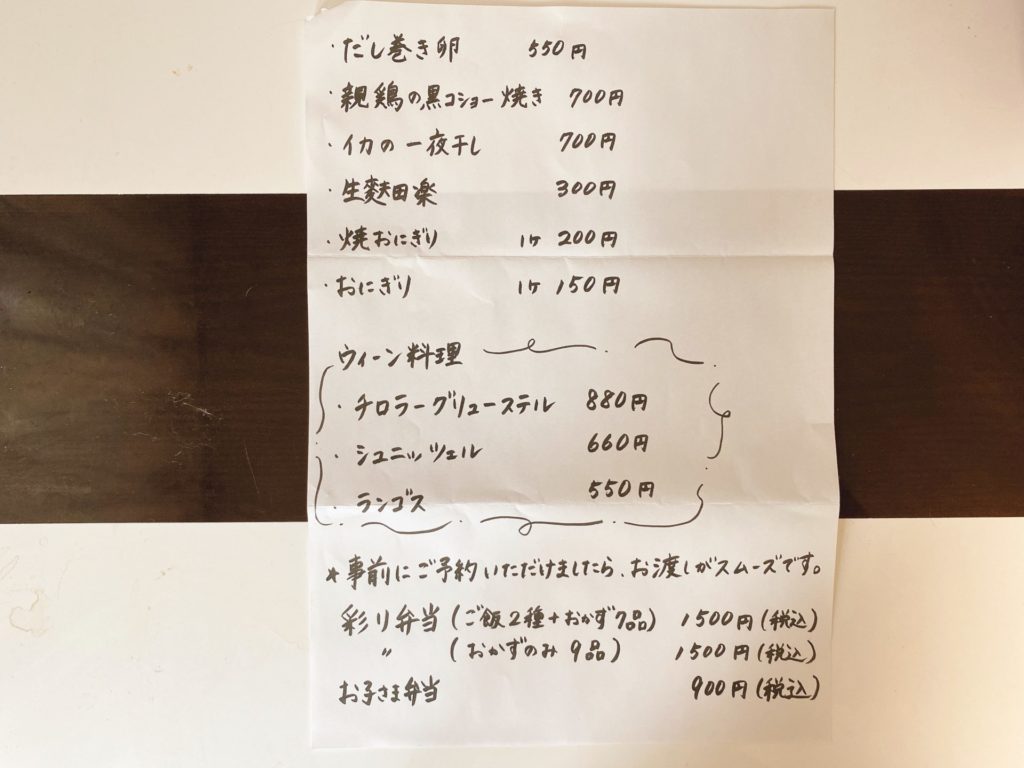 ・だし巻き卵 550円
・親鶏の黒コショー焼き 700円
・イカの一夜干し 700円
・生麩田楽 300円
・焼おにぎり 1ヶ 200円
・おにぎり 1ヶ 150円
ウィーン料理
・チロラーグリューステル 880円
・シュニッツェル 660円
・ランゴス 550円
*事前にご予約いただけましたら、お渡しがスムーズです。
彩り弁当 (ご飯2種+おかず7品) 1500円(税込)
〃 (おかずのみ 9品) 1500円(税込)
お子さま弁当 900円(税込)